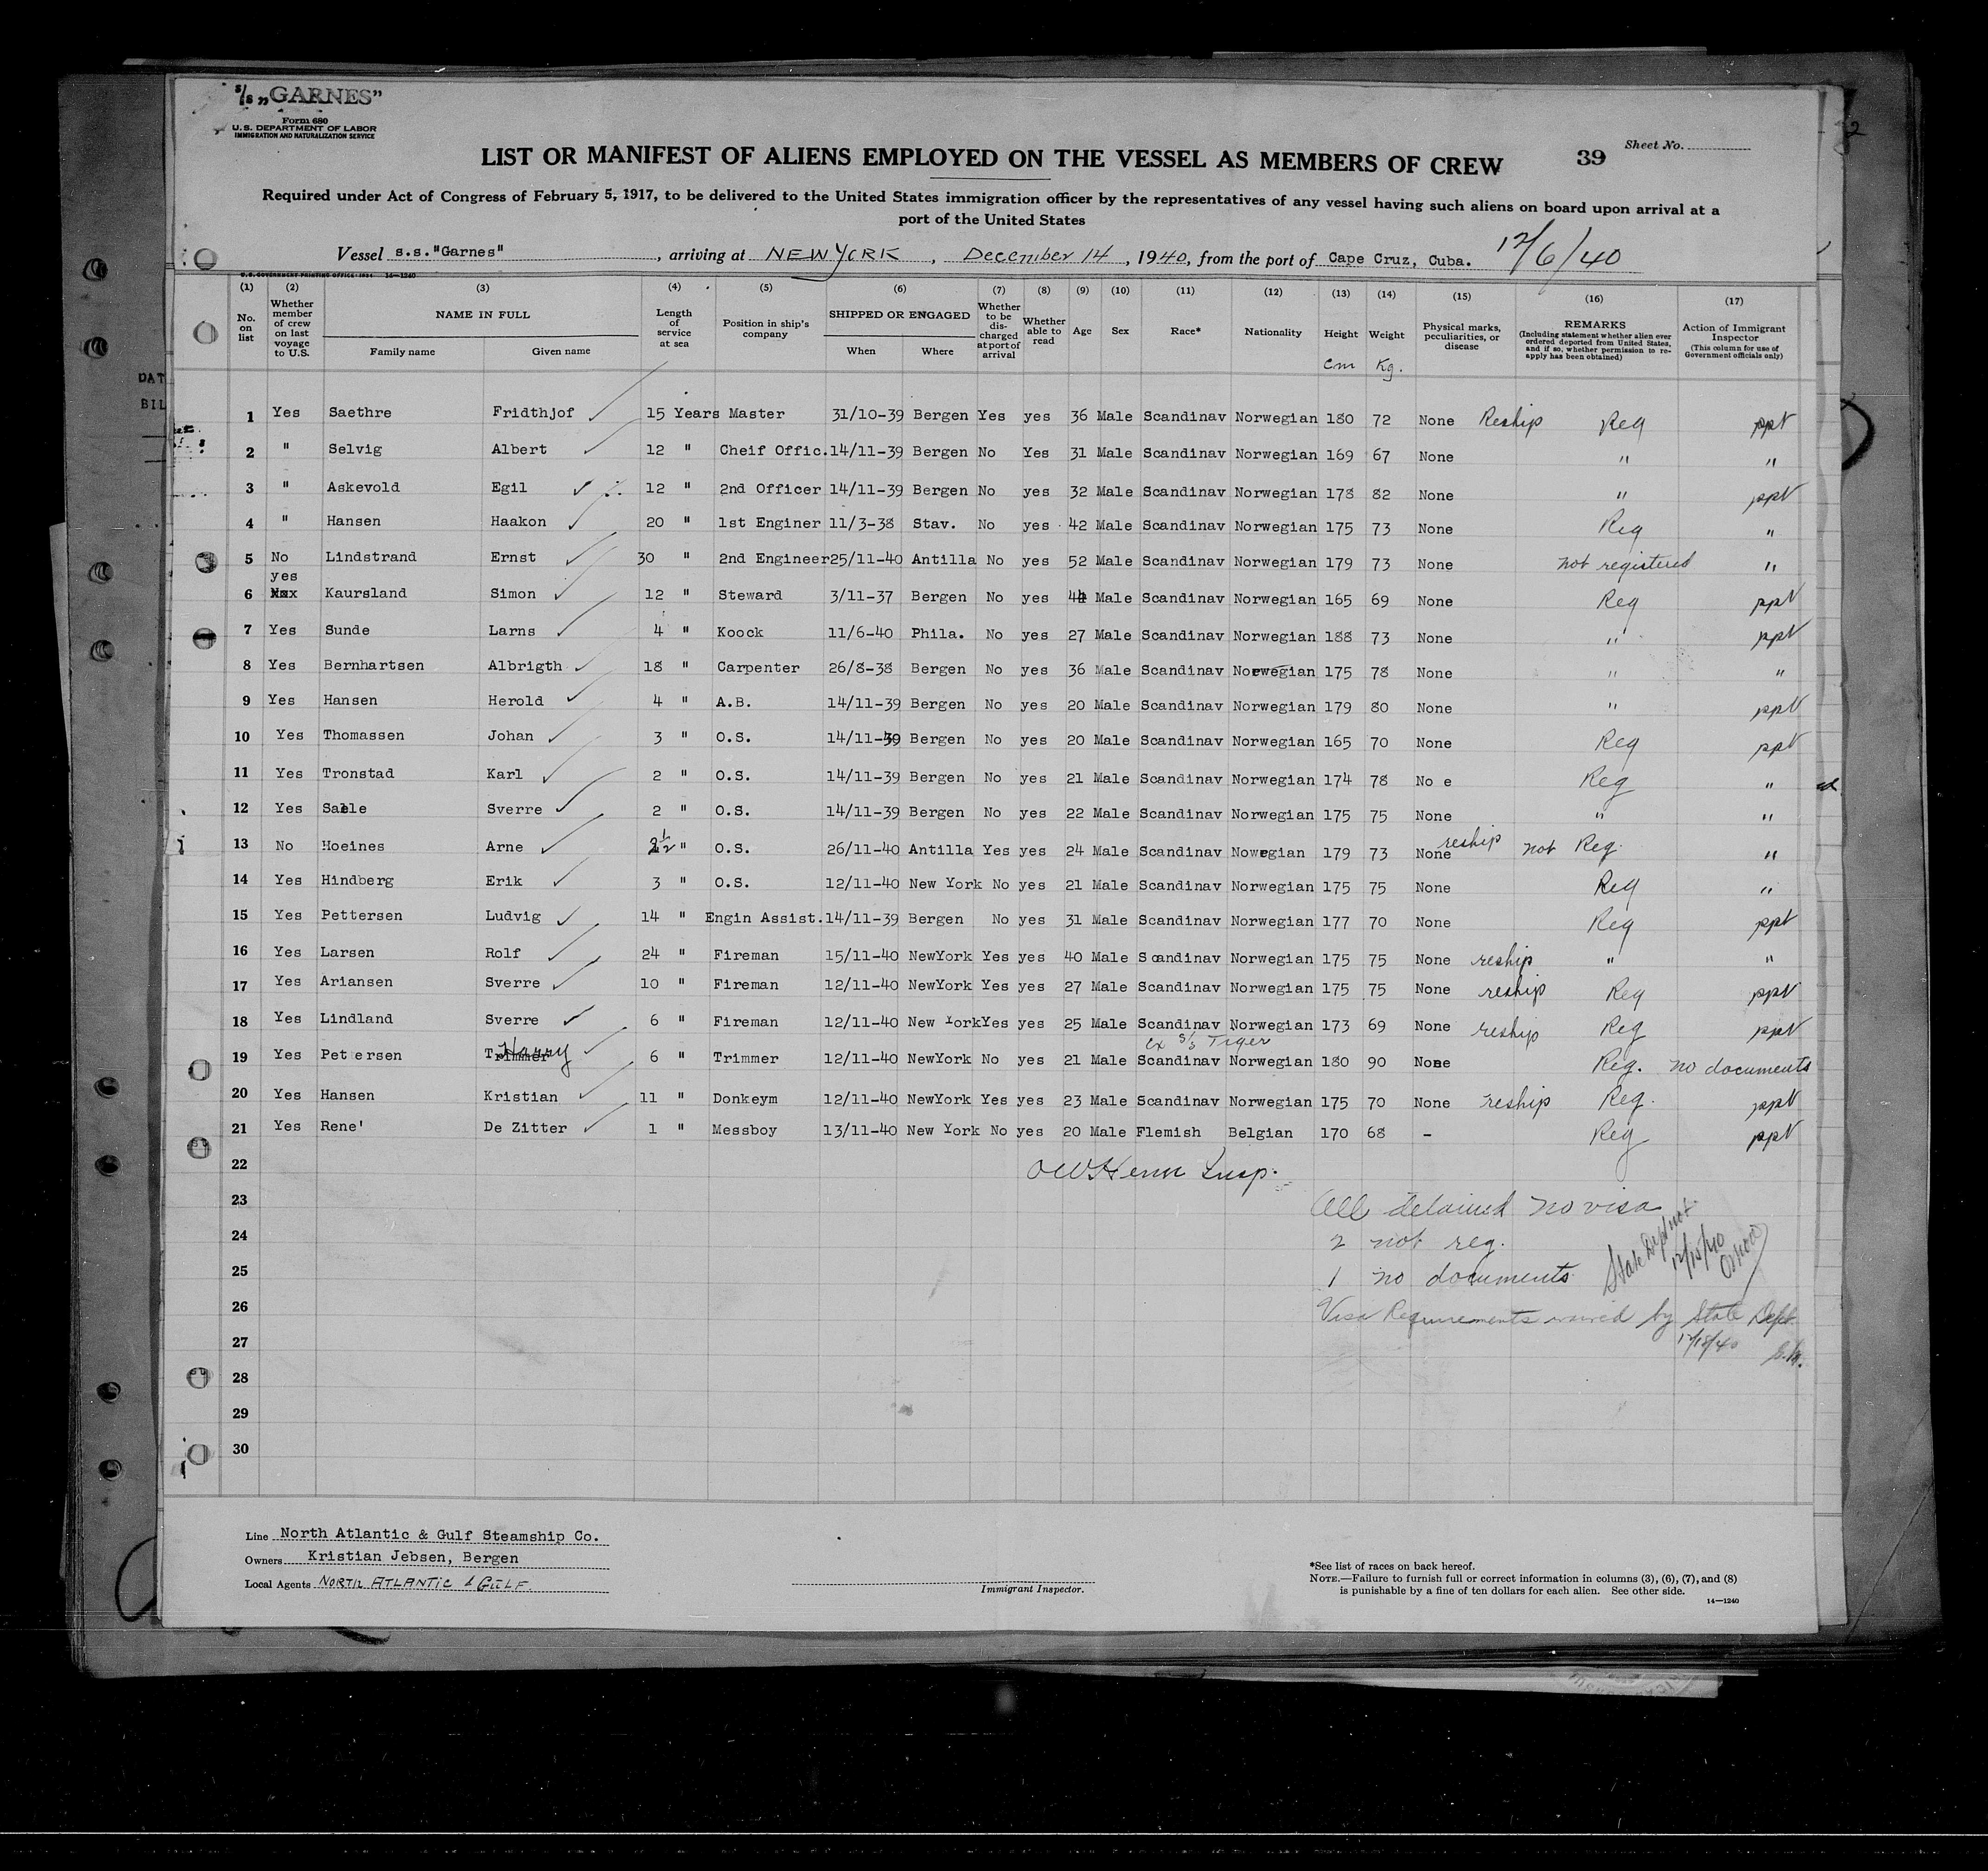 s/s „GARNES”
Form 680
U. S. DEPARTMENT OF LABOR
IMMIGRATION AND NATURALIZATION SERVICE
LIST OR MANIFEST OF ALIENS EMPLOYED ON THE VESSEL AS MEMBERS OF CREW
39
Sheet No.
Required under Act of Congress of February 5, 1917, to be delivered to the United States immigration officer by the representatives of any vessel having such aliens on board upon arrival at a
port of the United States
Vessel s.s."Garnes", arriving at NEW YORK, December 14, 1940, from the port of Cape Cruz, Cuba. 12/6/40
U.S. GOVERNMENT PRINTING OFFICE: 1934 14—1240
(1) (2) (3) (4) (5) (6) (7) (8) (9) (10) (11) (12) (13) (14) (15) (16) (17)
No. on list
Whether member of crew on last voyage to U.S.
NAME IN FULL
Family name Given name
Length of service at sea
Position in ship's company
SHIPPED OR ENGAGED
When Where
Whether to be discharged at port of arrival
Whether able to read
Age
Sex
Race*
Nationality
Height
cm
Weight
Kg.
Physical marks, peculiarities, or disease
REMARKS
(Including statement whether alien ever ordered deported from United States, and if so, whether permission to reapply has been obtained)
Action of Immigrant Inspector
(This column for use of Government officials only)
1 Yes Saethre Fridthjof 15 Years Master 31/10-39 Bergen Yes yes 36 Male Scandinav Norwegian 180 72 None Reship Reg ppt
2 " Selvig Albert 12 " Cheif Offic. 14/11-39 Bergen No Yes 31 Male Scandinav Norwegian 169 67 None " "
3 " Askevold Egil 12 " 2nd Officer 14/11-39 Bergen No yes 32 Male Scandinav Norwegian 178 82 None " ppt
4 " Hansen Haakon 20 " 1st Enginer 11/3-38 Stav. No yes 42 Male Scandinav Norwegian 175 73 None Reg "
5 No Lindstrand Ernst 30 " 2nd Engineer 25/11-40 Antilla No yes 52 Male Scandinav Norwegian 179 73 None not registered "
6 yes Kaursland Simon 12 " Steward 3/11-37 Bergen No yes 44 Male Scandinav Norwegian 165 69 None Reg ppt
7 Yes Sunde Larns 4 " Koock 11/6-40 Phila. No yes 27 Male Scandinav Norwegian 188 73 None " ppt
8 Yes Bernhartsen Albrigth 18 " Carpenter 26/8-38 Bergen No yes 36 Male Scandinav Norwegian 175 78 None " "
9 Yes Hansen Herold 4 " A.B. 14/11-39 Bergen No yes 20 Male Scandinav Norwegian 179 80 None " ppt
10 Yes Thomassen Johan 3 " O.S. 14/11-39 Bergen No yes 20 Male Scandinav Norwegian 165 70 None Reg ppt
11 Yes Tronstad Karl 2 " O.S. 14/11-39 Bergen No yes 21 Male Scandinav Norwegian 174 78 No e Reg "
12 Yes Sverre 2 " O.S. 14/11-39 Bergen No yes 22 Male Scandinav Norwegian 175 75 None " "
13 No Hoeines Arne " O.S. 26/11-40 Antilla Yes yes 24 Male Scandinav Nowegian 179 73 None reship not Reg. "
14 Yes Hindberg Erik 3 " O.S. 12/11-40 New York No yes 21 Male Scandinav Norwegian 175 75 None Reg "
15 Yes Pettersen Ludvig 14 " Engin Assist. 14/11-39 Bergen No yes 31 Male Scandinav Norwegian 177 70 None Reg ppt
16 Yes Larsen Rolf 24 " Fireman 15/11-40 NewYork Yes yes 40 Male Scandinav Norwegian 175 75 None reship " "
17 Yes Ariansen Sverre 10 " Fireman 12/11-40 NewYork Yes yes 27 Male Scandinav Norwegian 175 75 None reship Reg ppt
18 Yes Lindland Sverre 6 " Fireman 12/11-40 New York Yes yes 25 Male Scandinav Norwegian 173 69 None reship Reg ppt
ex S/S Tiger
19 Yes Petersen Trimmer Harry 6 " Trimmer 12/11-40 NewYork No yes 21 Male Scandinav Norwegian 180 90 None Reg. no documents
20 Yes Hansen Kristian 11 " Donkeym 12/11-40 NewYork Yes yes 23 Male Scandinav Norwegian 175 70 None reship Reg. ppt
21 Yes Rene' De Zitter 1 " Messboy 13/11-40 New York No yes 20 Male Flemish Belgian 170 68 - Reg ppt
22 Insp.
23 All detained no visa
24 2 not reg.
25 1 no documents
State Dept not
12/15/40
26 Visa Requirements waived by State Dept.
27 12/18/40
28
29
30
Line North Atlantic & Gulf Steamship Co.
Owners Kristian Jebsen, Bergen
Local Agents NORTH ATLANTIC & GULF.
Immigrant Inspector.
*See list of races on back hereof.
NOTE.—Failure to furnish full or correct information in columns (3), (6), (7), and (8)
is punishable by a fine of ten dollars for each alien. See other side.
14—1240
DAT
BIL
2